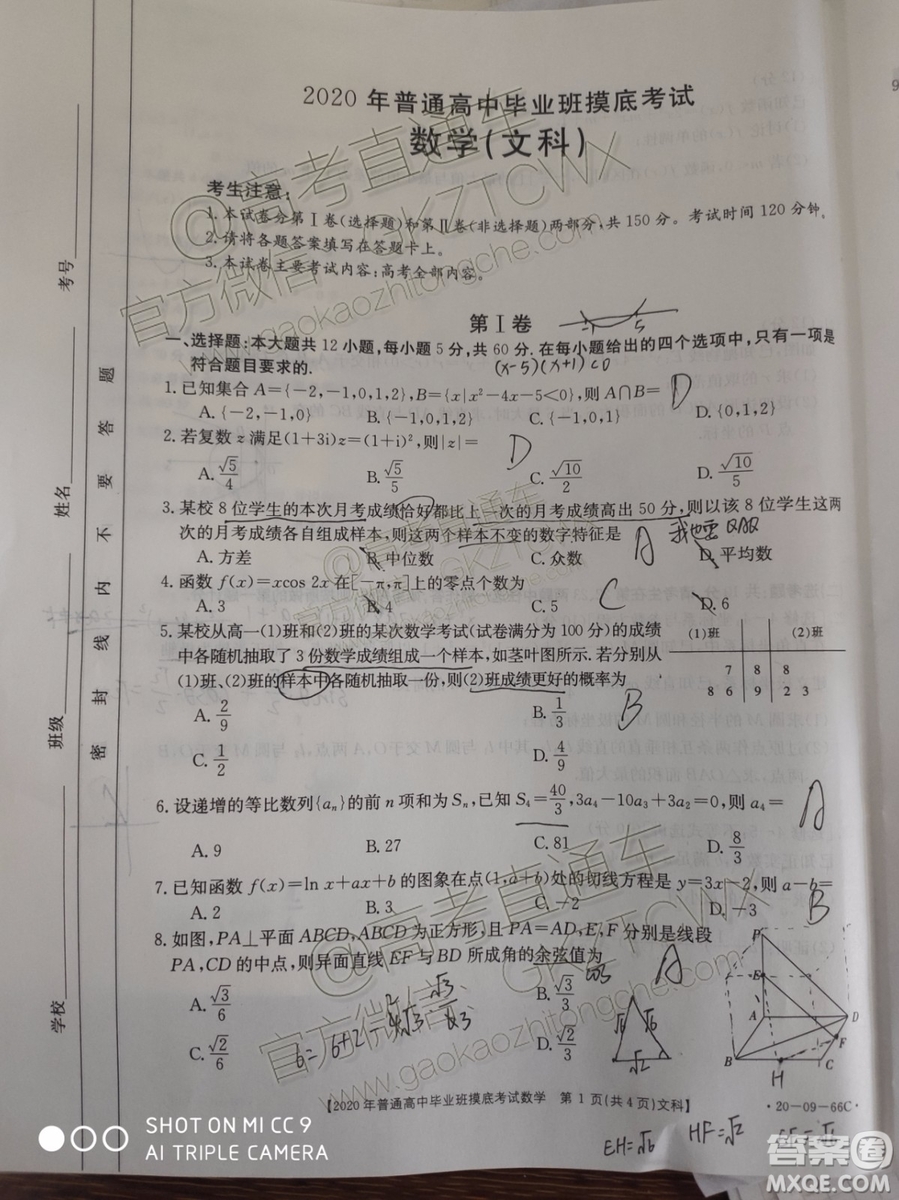 2020年普通高中毕业班摸底考试
数学(文科)
考生注意:
1.本试卷分第Ⅰ卷(选择题)和第Ⅱ卷(非选择题)两部分,共150分。考试时间120分钟。
2.请将各题答案填写在答题卡上。
3.本试卷主要考试内容:高考全部内容。
第Ⅰ卷
-1 5
一、选择题:本大题共12小题,每小题5分,共60分.在每小题给出的四个选项中,只有一项是
符合题目要求的.
(x-5)(x+1)<0
1.已知集合A={-2,-1,0,1,2},B={x|x²-4x-5<0},则A∩B= D
A.{-2,-1,0} B.{-1,0,1,2} C.{-1,0,1} D.{0,1,2}
2.若复数z满足(1+3i)z=(1+i)²,则|z|= D
A.√5/4 B.√5/5 C.√10/2 D.√10/5
3.某校8位学生的本次月考成绩恰好都比上一次的月考成绩高出50分,则以该8位学生这两
次的月考成绩各自组成样本,则这两个样本不变的数字特征是 A 我也要QAQ
A.方差 B.中位数 C.众数 D.平均数
4.函数f(x)=xcos 2x在[-π,π]上的零点个数为 C
A.3 B.4 C.5 D.6
5.某校从高一(1)班和(2)班的某次数学考试(试卷满分为100分)的成绩
中各随机抽取了3份数学成绩组成一个样本,如茎叶图所示.若分别从
(1)班、(2)班的样本中各随机抽取一份,则(2)班成绩更好的概率为 B
(1)班 (2)班
7 8 8
8 6 9 2 3
A.2/9 B.1/3
C.1/2 D.4/9
6.设递增的等比数列{aₙ}的前n项和为Sₙ,已知S₄=40/3,3a₄-10a₃+3a₂=0,则a₄= A
A.9 B.27 C.81 D.8/3
7.已知函数f(x)=ln x+ax+b的图象在点(1,a+b)处的切线方程是y=3x-2,则a-b= B
A.2 B.3 C.-2 D.-3
8.如图,PA⊥平面ABCD,ABCD为正方形,且PA=AD,E,F分别是线段
PA,CD的中点,则异面直线EF与BD所成角的余弦值为 A
A.√3/6 B.√3/3
C.√2/6 D.√2/3
P
E
A D
F
B C
H
√6 √6
√2
【2020年普通高中毕业班摸底考试数学 第1页(共4页)文科】
·20-09-66C·
EH=√6 HF=√2 EF=√6
考号
姓名
班级
学校
密 封 线 内 不 要 答 题
@高考直通车
官方微信:GKZTCWX
www.gaokaozhitongche.com
@高考直通车
官方微信:GKZTCWX
www.gaokaozhitongche.com
SHOT ON MI CC 9
AI TRIPLE CAMERA
答案圈
MXQE.COM